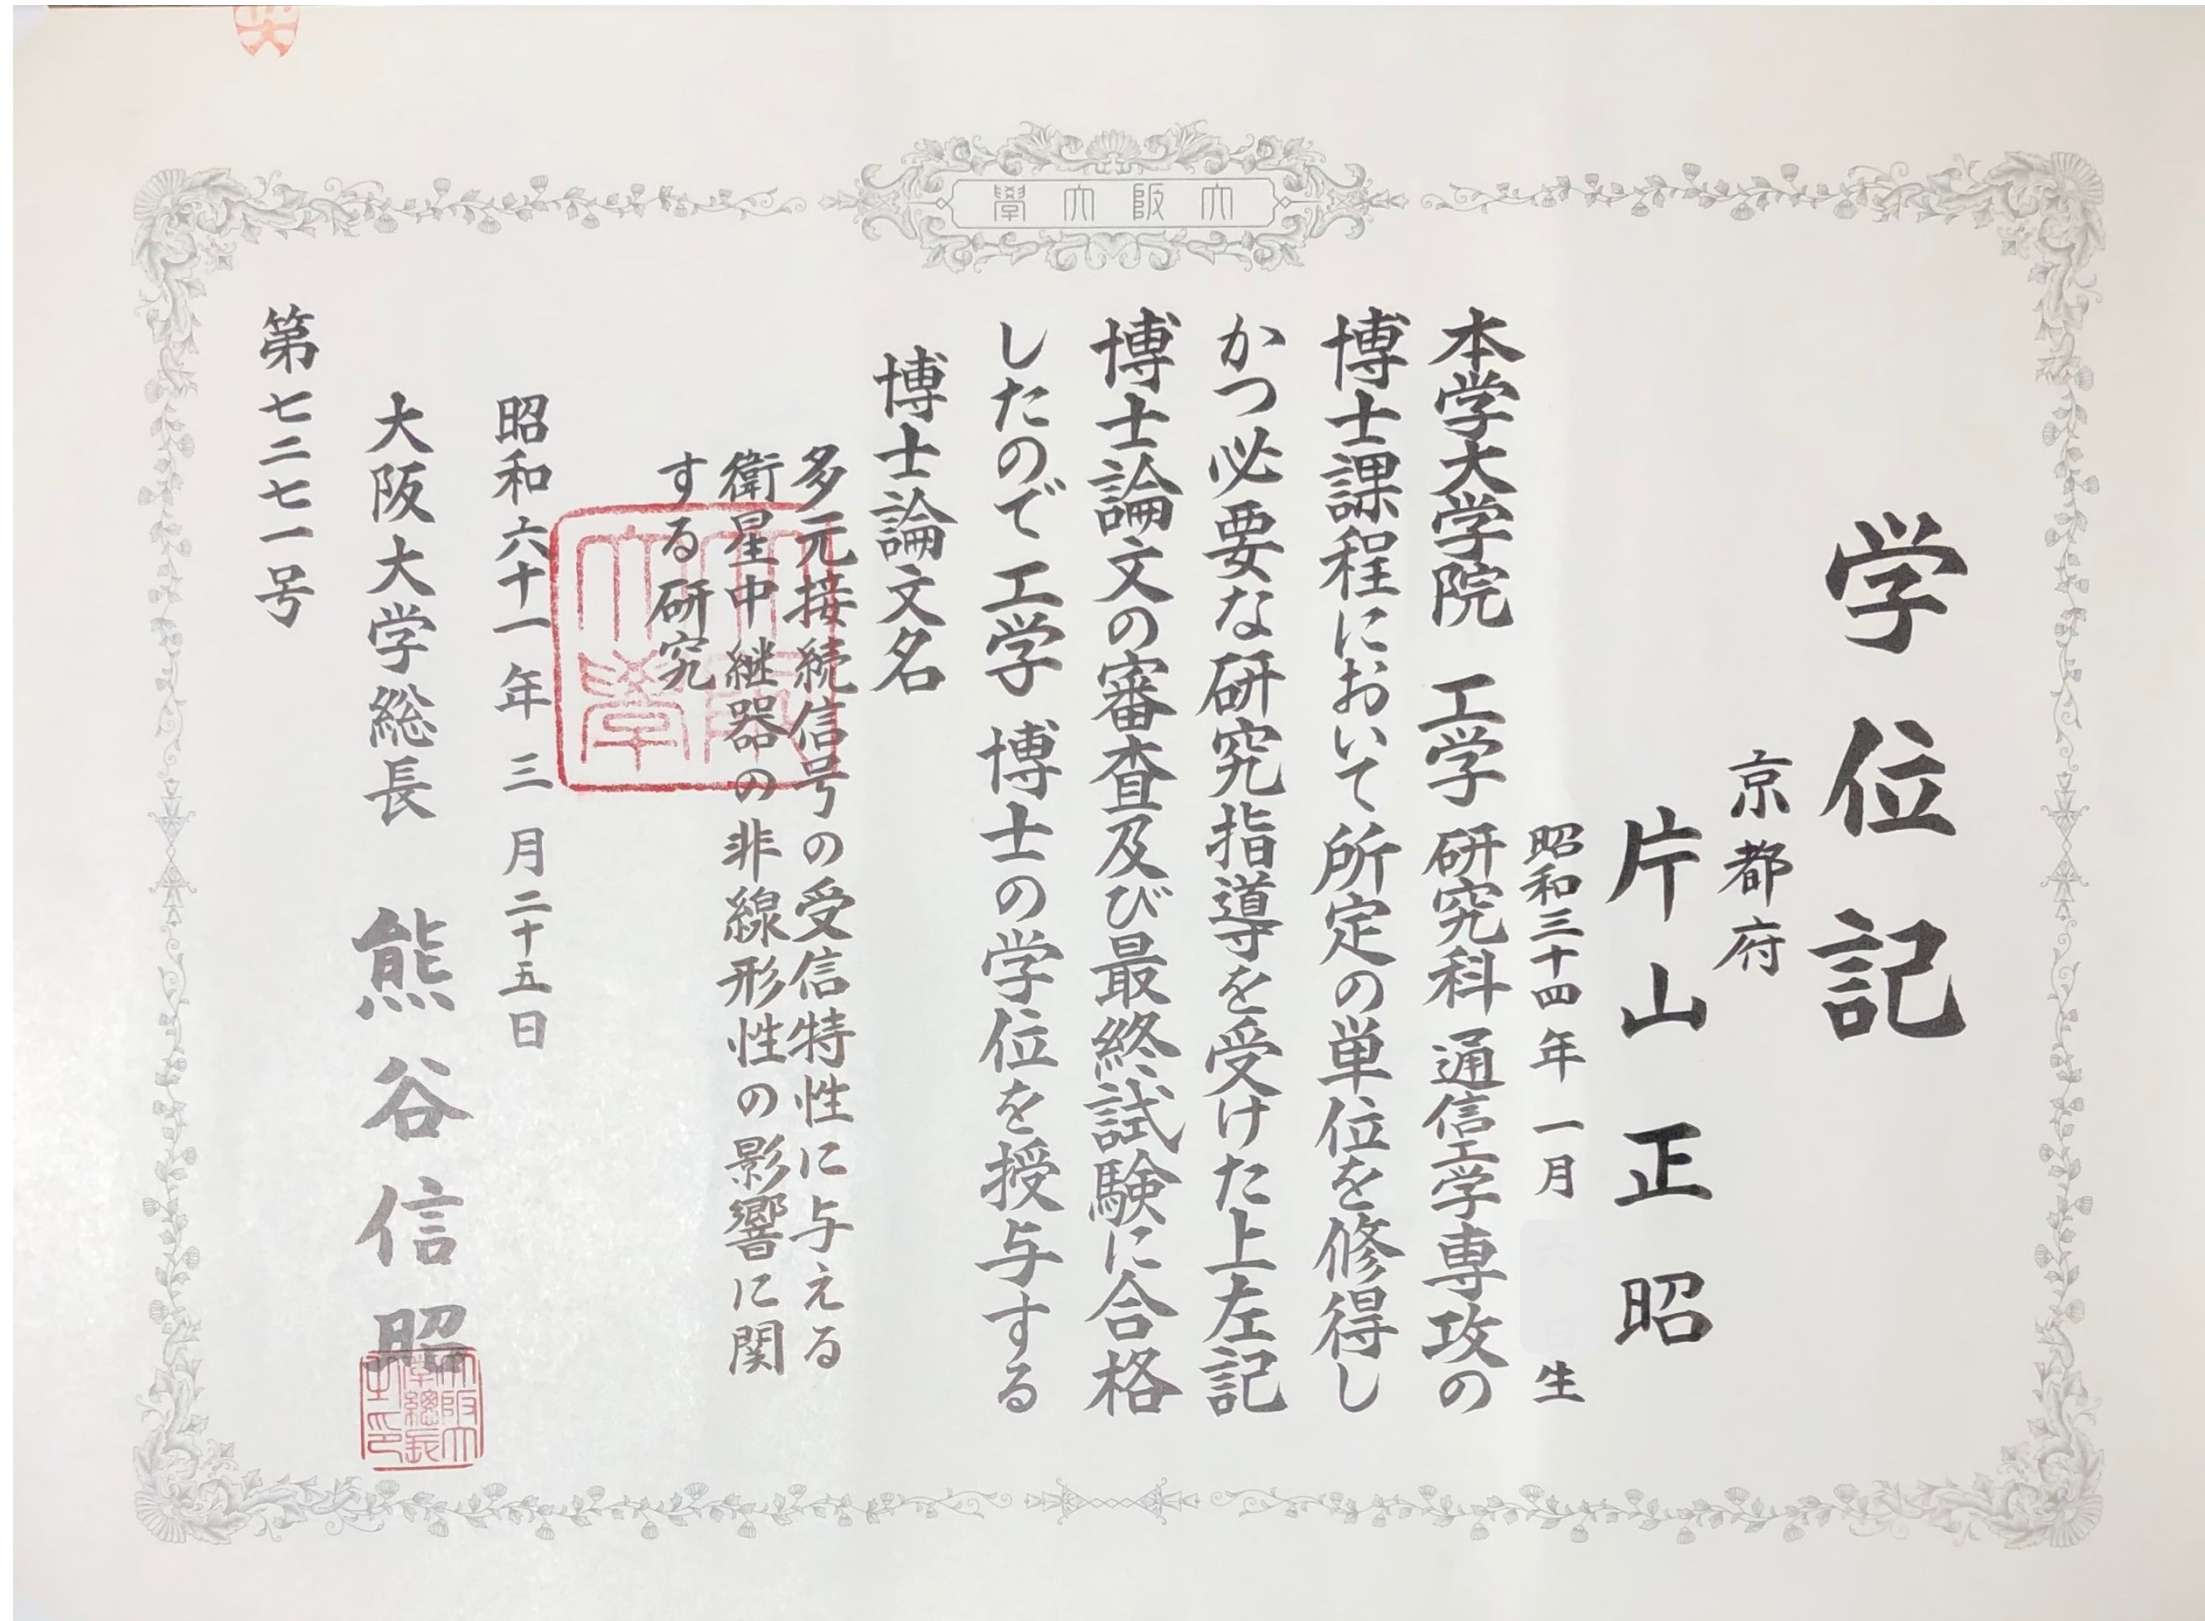 大阪大學
学位記
京都府
片山正昭
昭和三十四年一月 生
本学大学院 工学 研究科 通信工学専攻の
博士課程において所定の単位を修得し
かつ必要な研究指導を受けた上左記
博士論文の審査及び最終試験に合格
したので 工学 博士の学位を授与する
博士論文名
多元接続信号の受信特性に与える
衛星中継器の非線形性の影響に関
する研究
昭和六十一年三月二十五日
大阪大学総長 熊谷信昭
第七二七一号
大阪大學
大阪大學總長之印